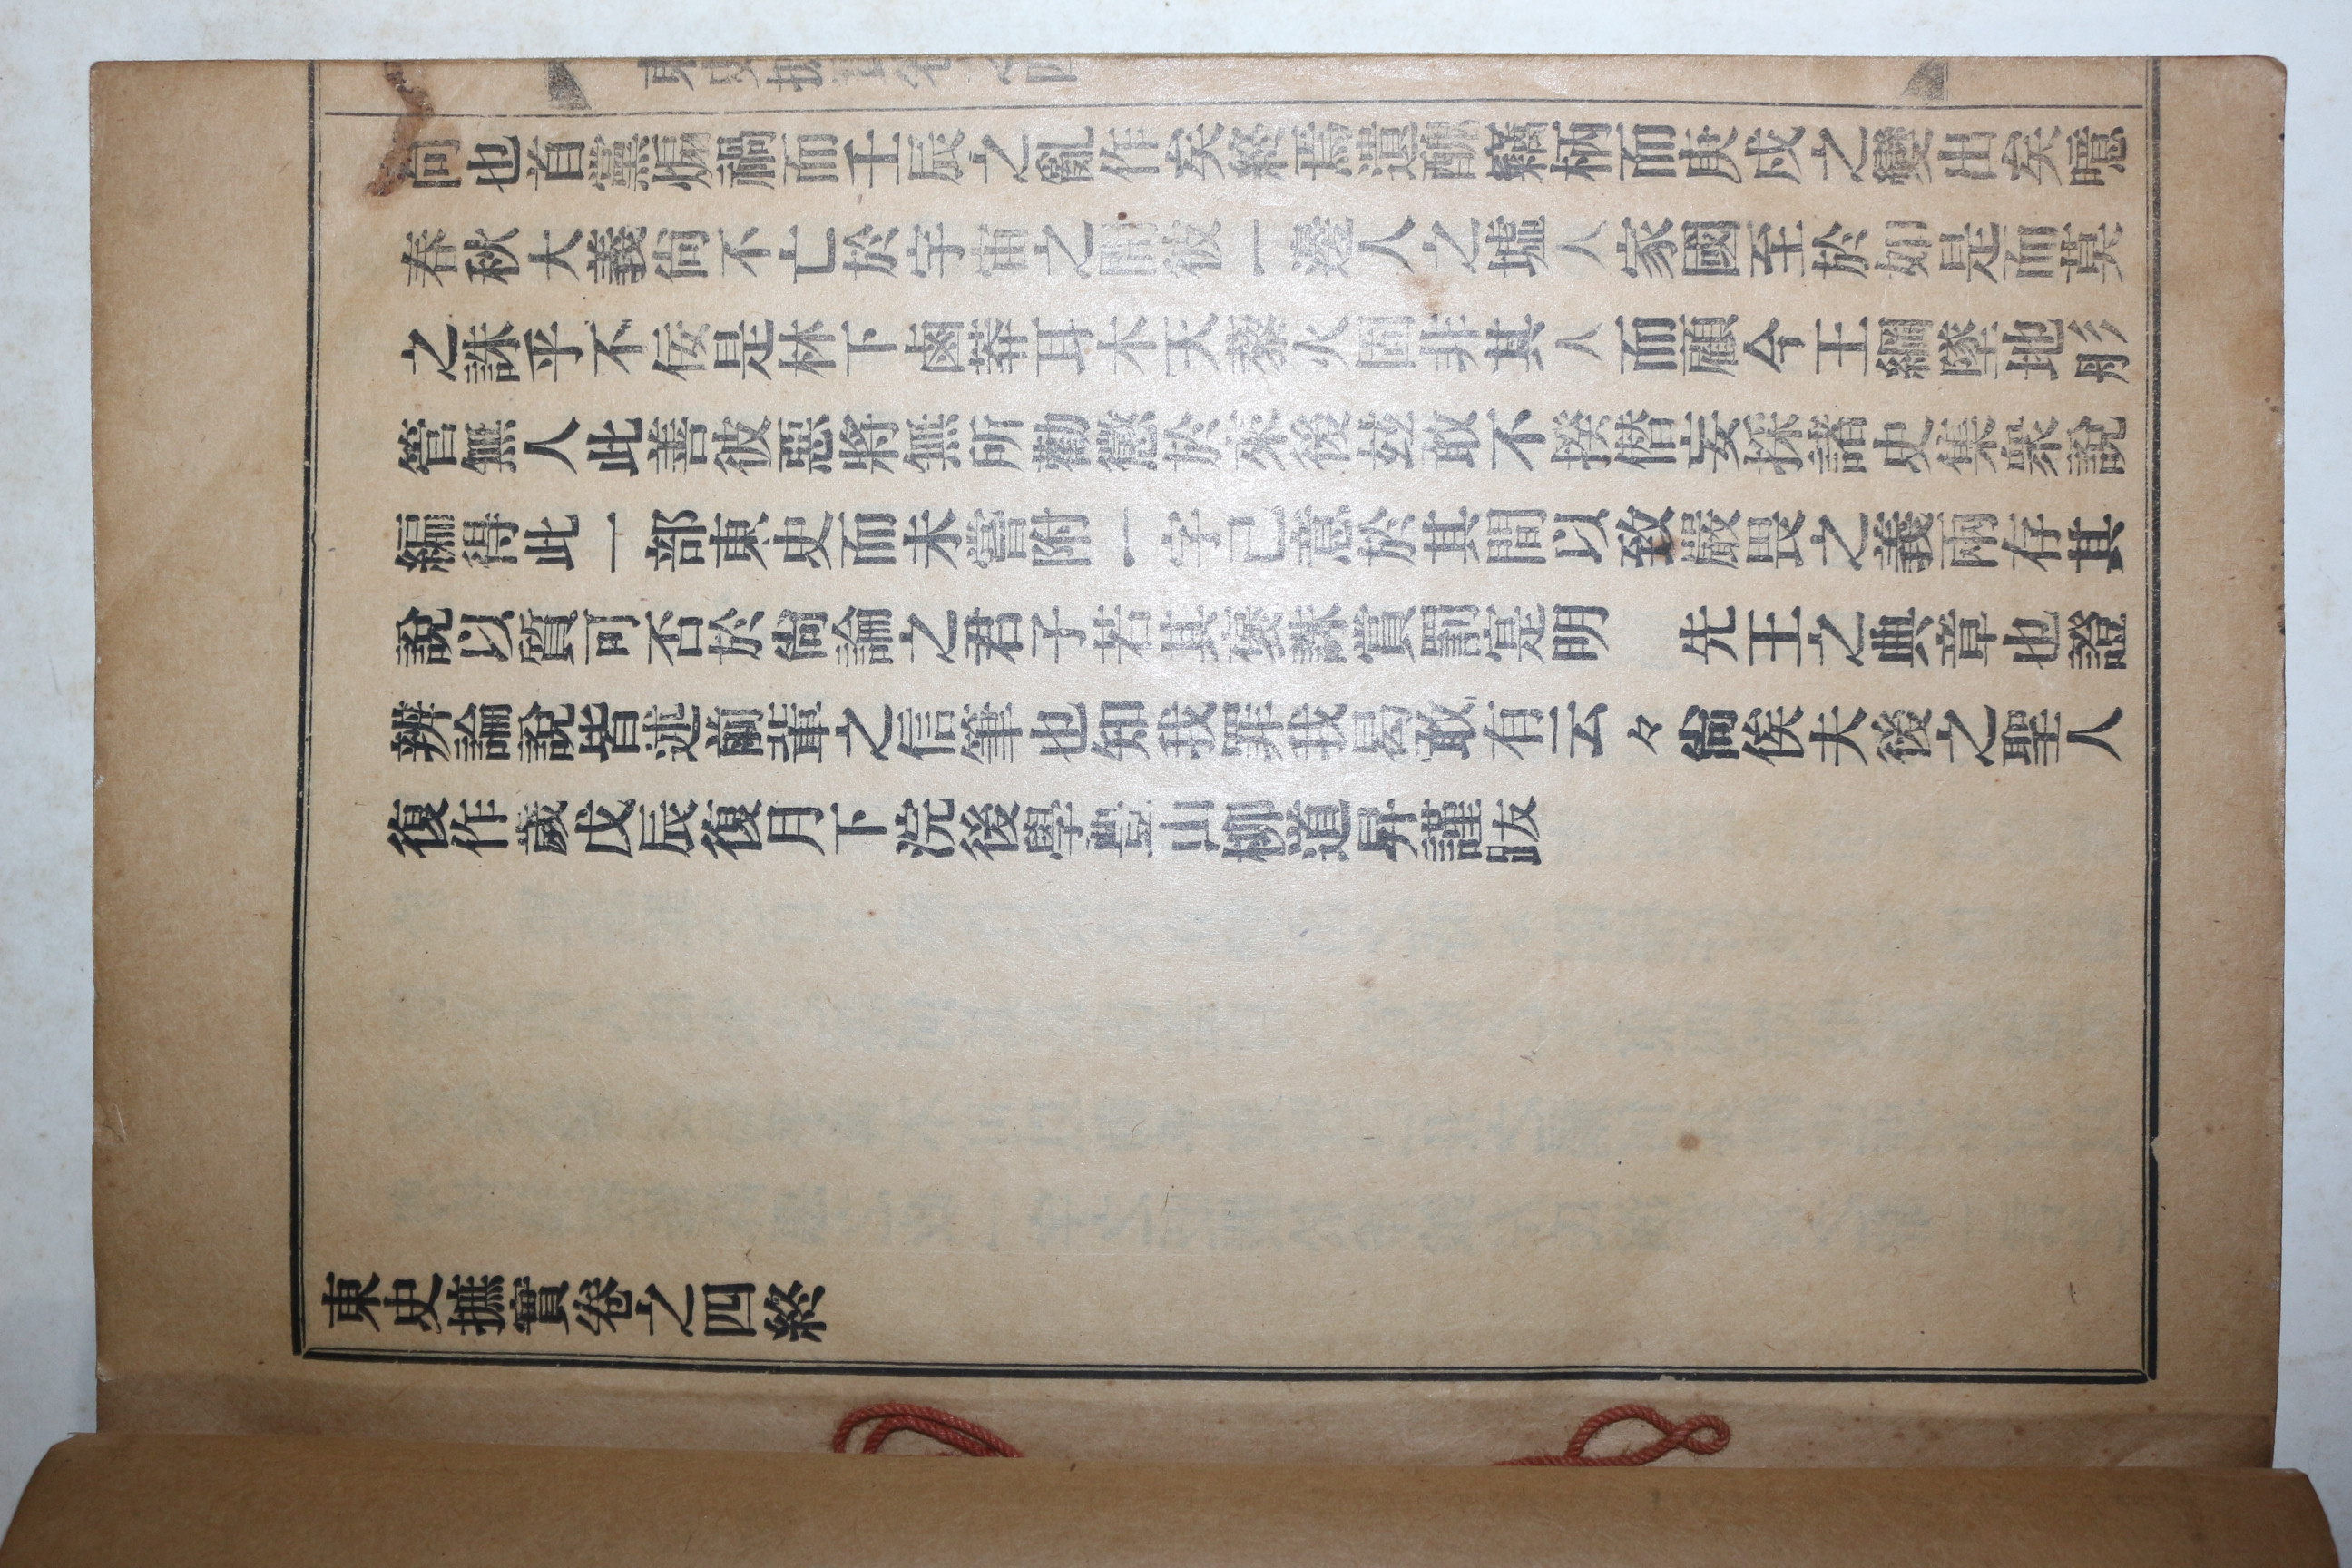 東史摭實卷之四
向也首黨煽禍而壬辰之亂作矣終焉遺醜竊柄而庚戍之變出矣噫
春秋大義尙不亡於宇宙之間彼一邊人之墟人家國至於如是而莫
之誅乎不佞是林下鹵莽耳木天藜火固非其人而顧今王綱墜地彤
管無人此善彼惡將無所勸懲於來後玆敢不揆僭妄採諸史集衆說
編得此一部東史而未嘗附一字己意於其間以致嚴畏之義兩存其
說以質可否於尙論之君子若其褒誅賞罰寔明 先王之典章也證
辨論說皆述前輩之信筆也知我罪我曷敢有云々尙俟夫後之聖人
復作歲戊辰復月下浣後學豊山柳道昇謹跋
東史摭實卷之四終